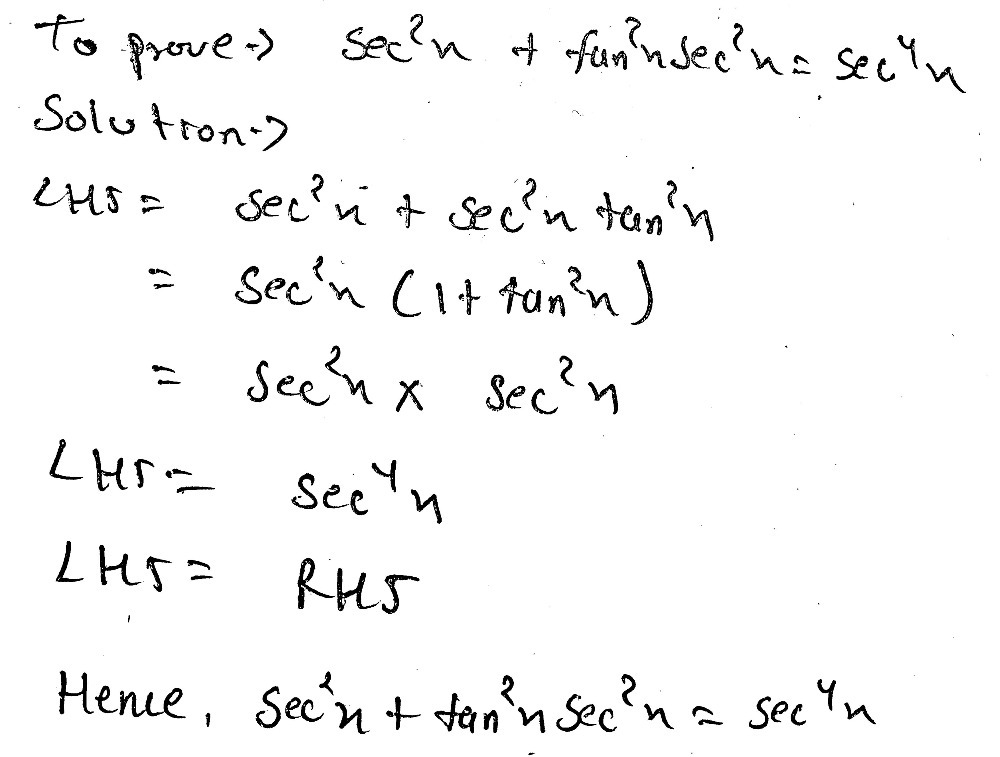 To prove→ sec²x + tan²x sec²x = sec⁴x
Solution→
LHS = sec²x + sec²x tan²x
= sec²x (1 + tan²x)
= sec²x × sec²x
LHS = sec⁴x
LHS = RHS
Hence, sec²x + tan²x sec²x = sec⁴x